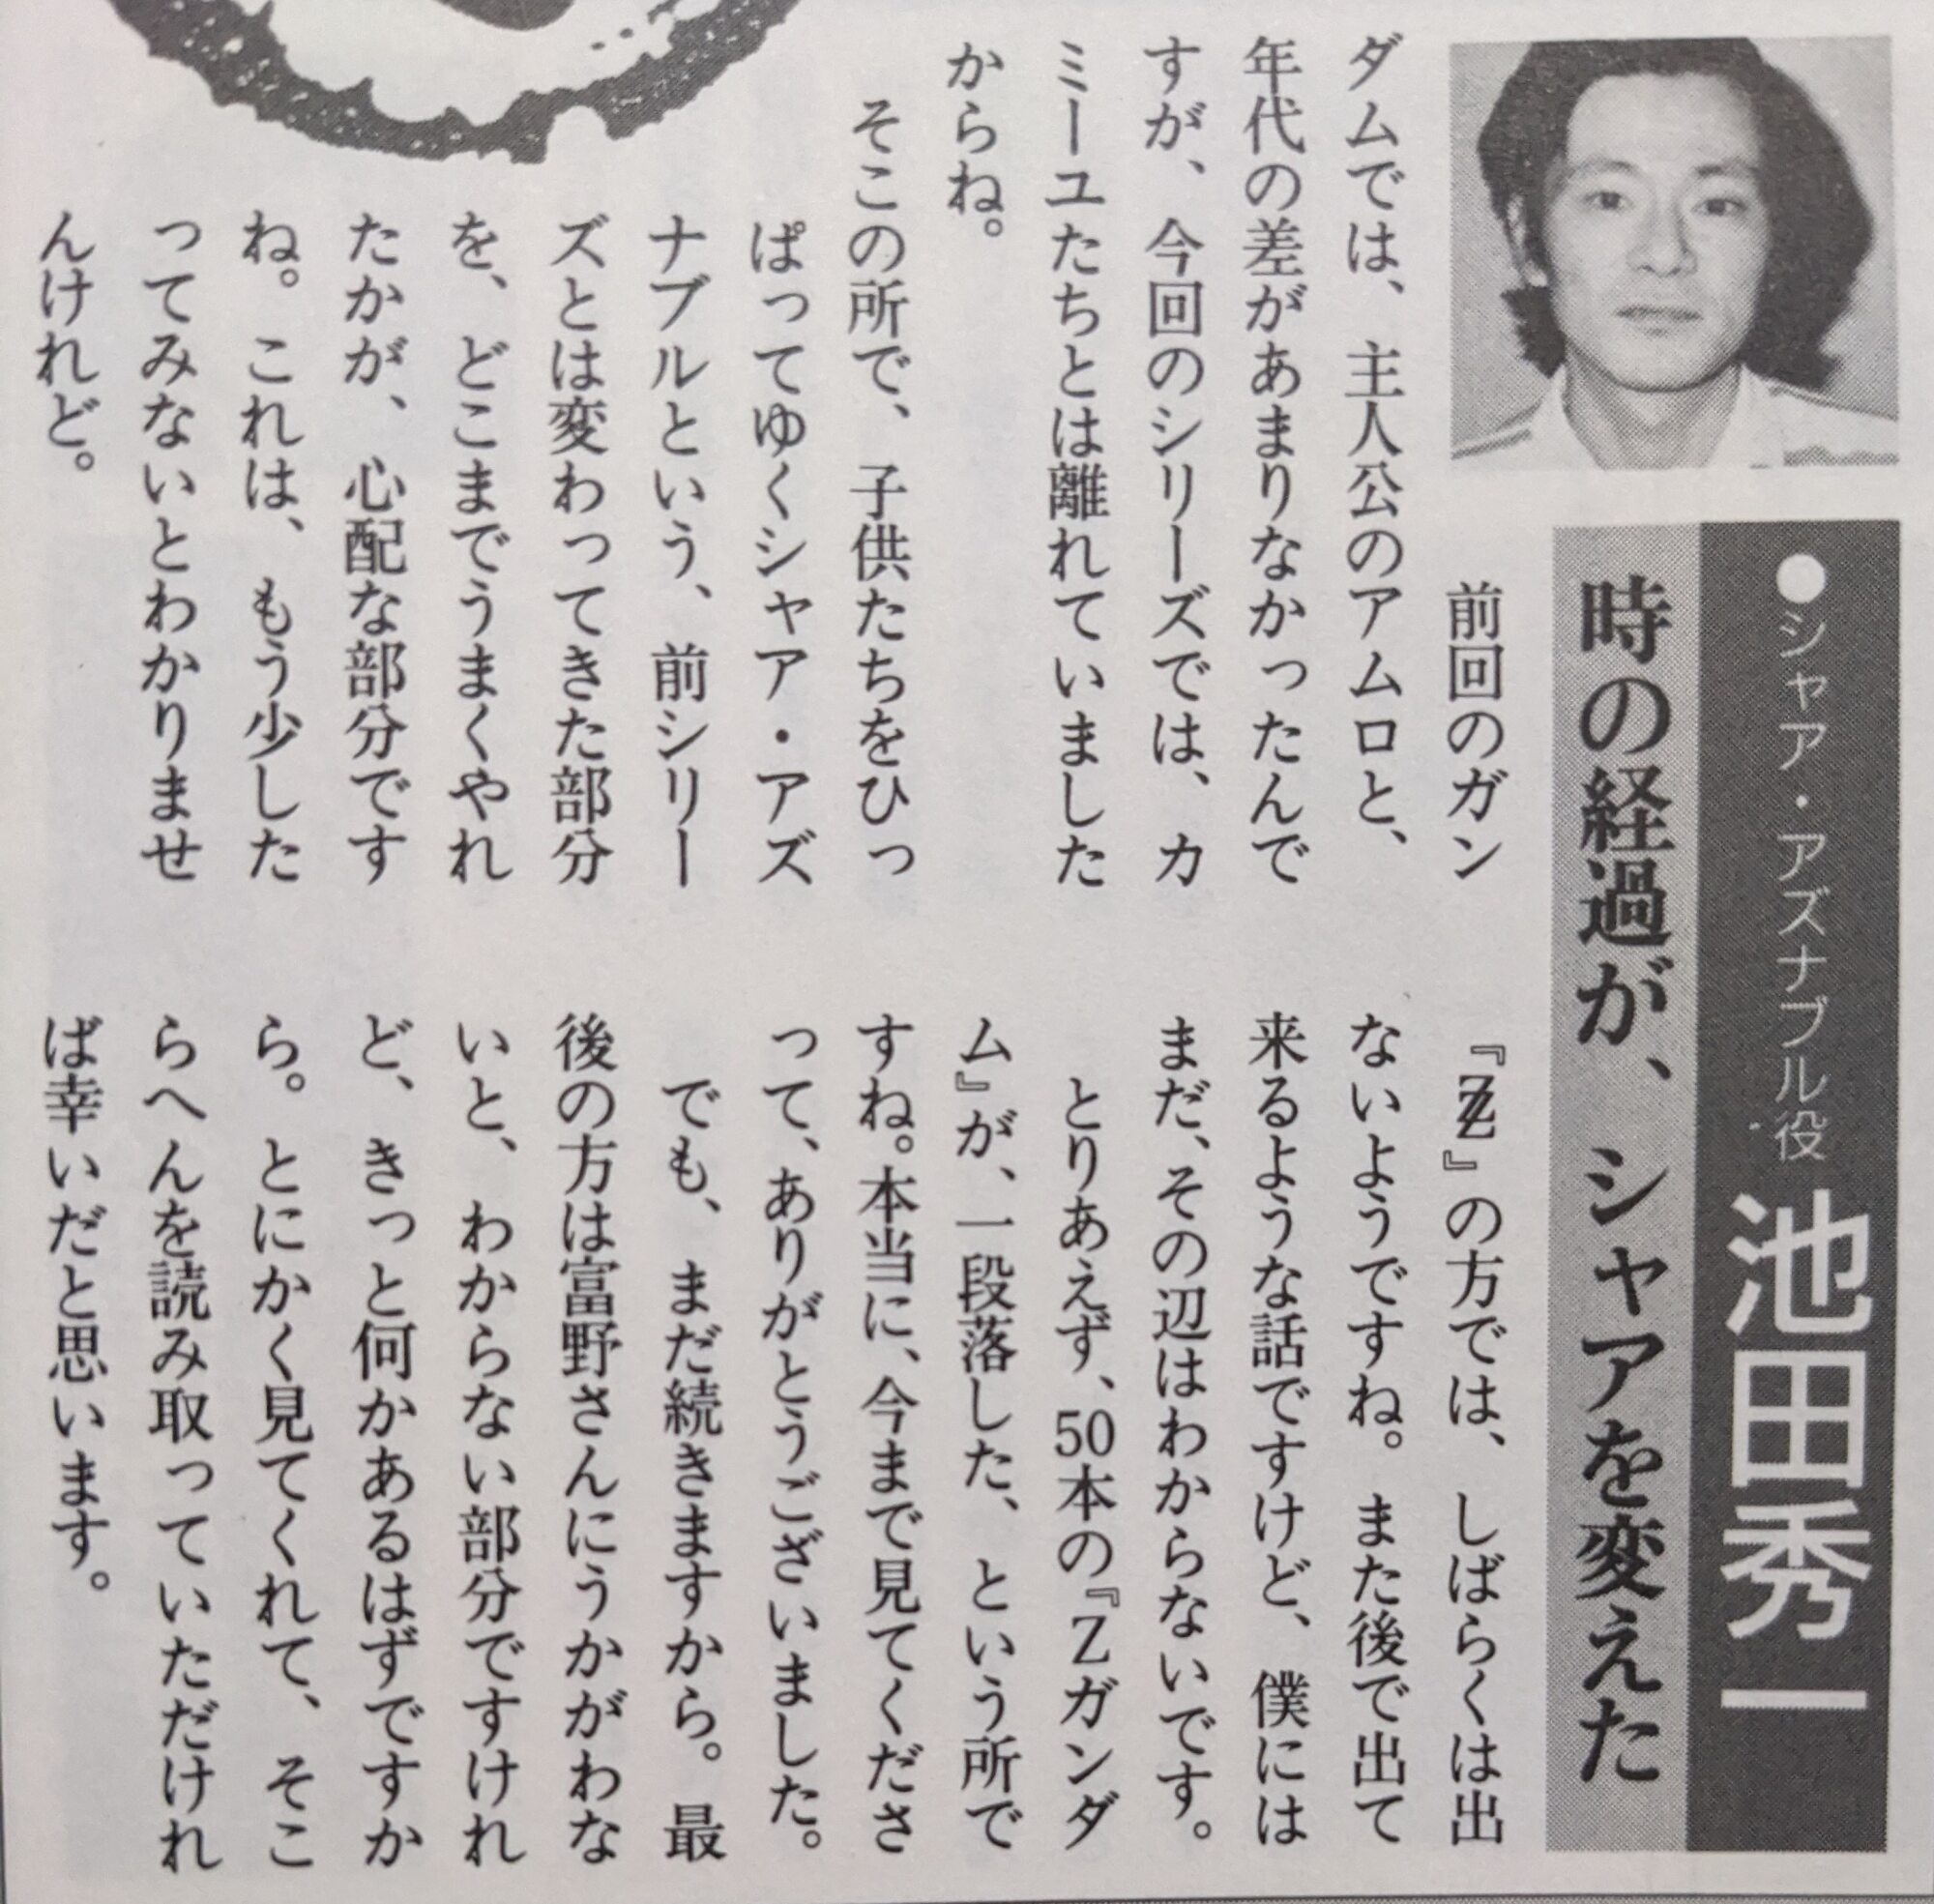 ●シャア・アズナブル役 池田秀一
時の経過が、シャアを変えた
前回のガン
ダムでは、主人公のアムロと、
年代の差があまりなかったんで
すが、今回のシリーズでは、カ
ミーユたちとは離れていました
からね。
そこの所で、子供たちをひっ
ぱってゆくシャア・アズ
ナブルという、前シリー
ズとは変わってきた部分
を、どこまでうまくやれ
たかが、心配な部分です
ね。これは、もう少した
ってみないとわかりませ
んけれど。
『ZZ』の方では、しばらくは出
ないようですね。また後で出て
来るような話ですけど、僕には
まだ、その辺はわからないです。
とりあえず、50本の『Zガンダ
ム』が、一段落した、という所で
すね。本当に、今まで見てくださ
って、ありがとうございました。
でも、まだ続きますから。最
後の方は富野さんにうかがわな
いと、わからない部分ですけれ
ど、きっと何かあるはずですか
ら。とにかく見てくれて、そこ
らへんを読み取っていただけれ
ば幸いだと思います。